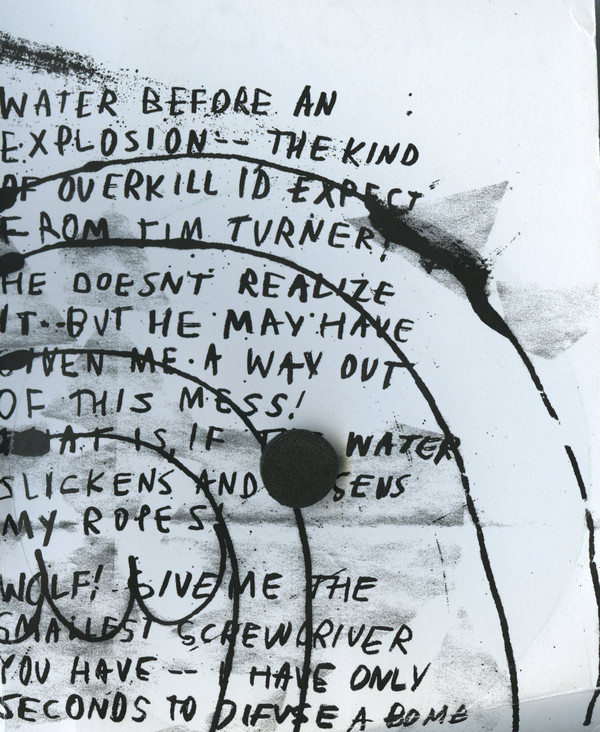 WATER BEFORE AN
EXPLOSION-- THE KIND
OF OVERKILL ID EXPECT
FROM TIM TURNER!
HE DOESNT REALIZE
IT--BUT HE MAY HAVE
GIVEN ME A WAY OUT
OF THIS MESS!
THAT IS, IF THE WATER
SLICKENS AND
MY ROPES!
WOLF! GIVE ME THE
SMALLEST SCREWDRIVER
YOU HAVE -- I HAVE ONLY
SECONDS TO DIFUSE A BOMB